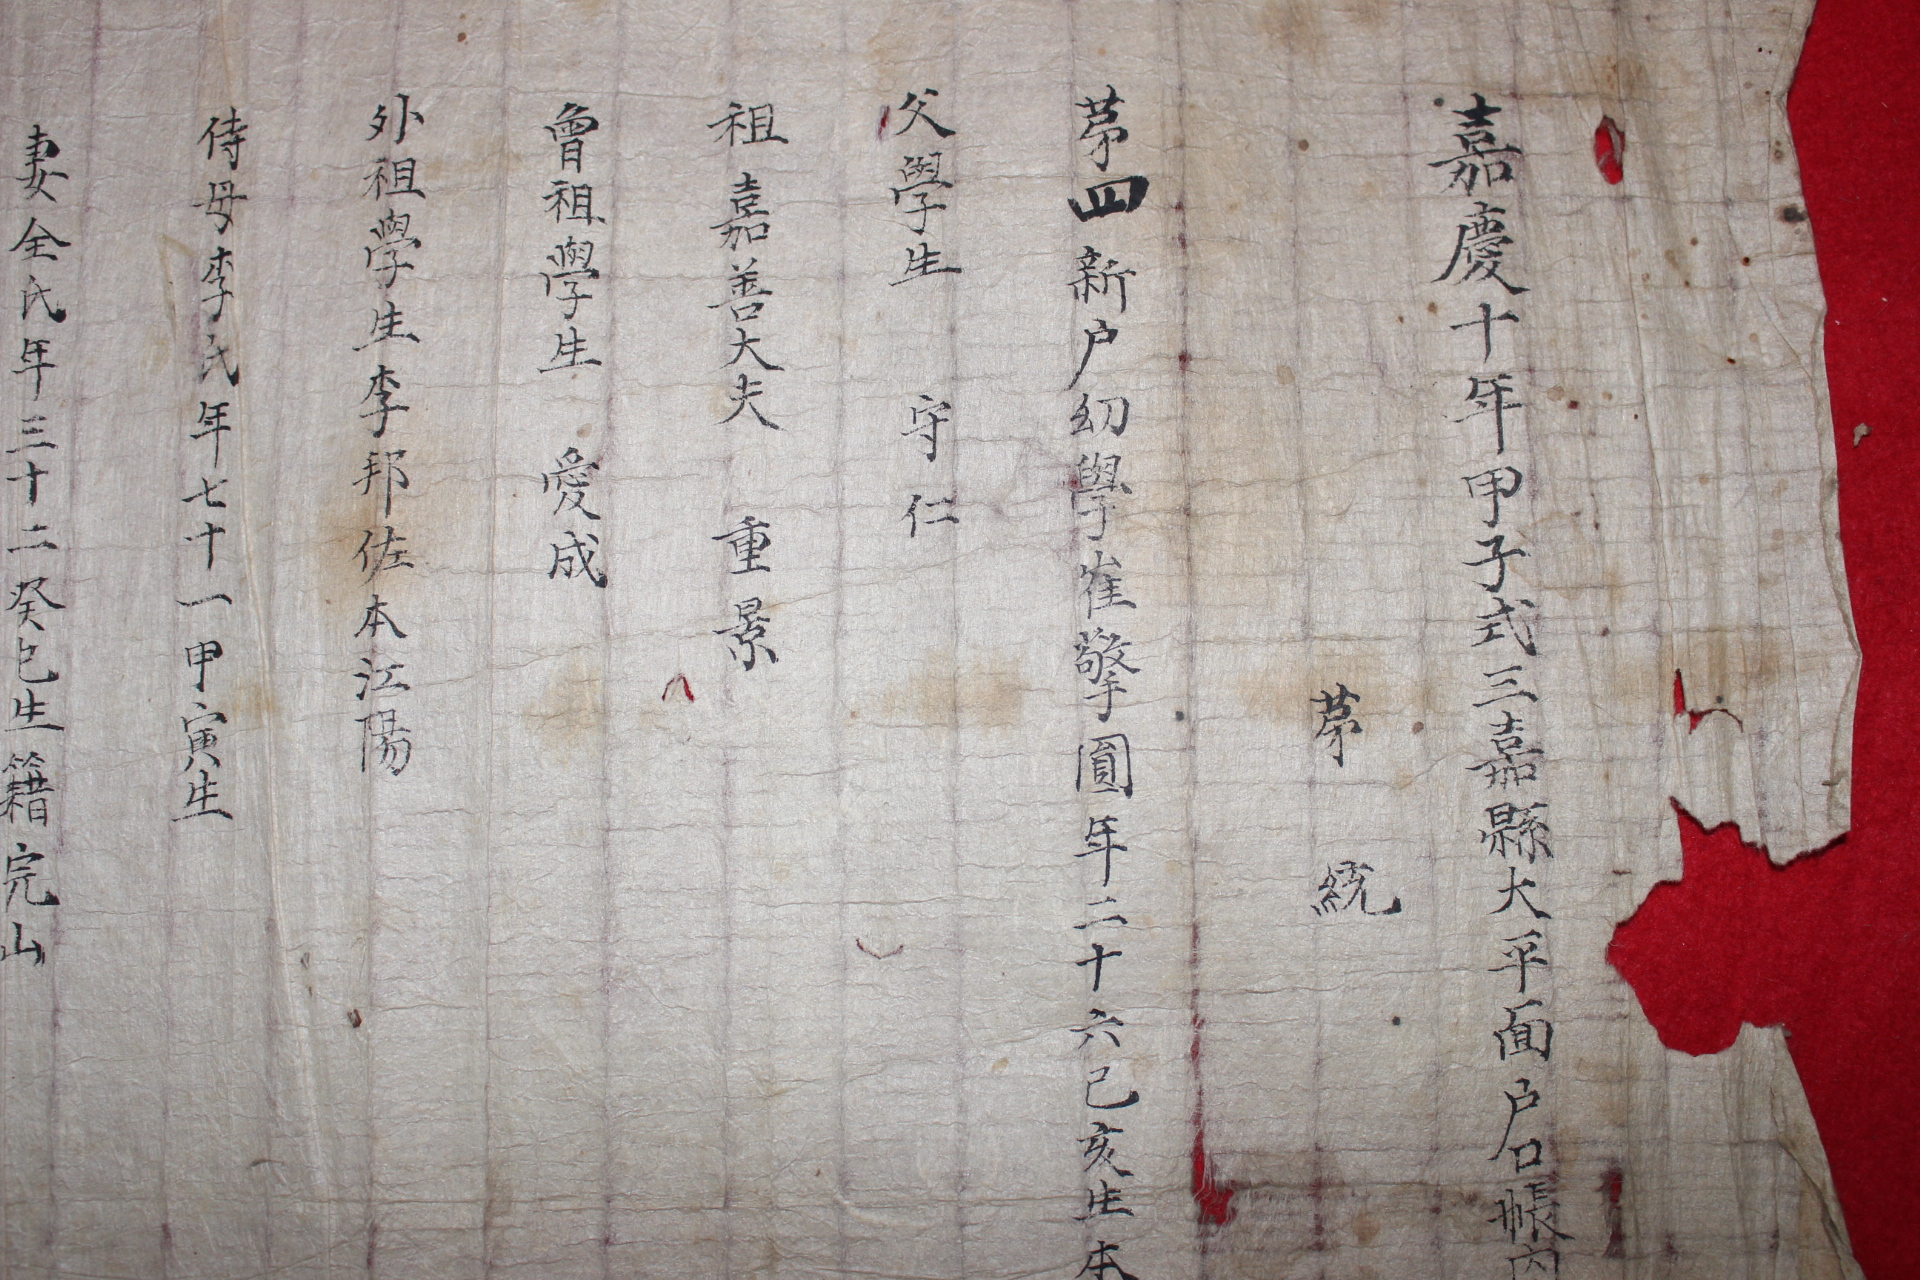 嘉慶十年甲子式三嘉縣大平面戶口帳內
苐 統
苐四新戶幼學崔擎圓年二十六己亥生本
父學生 守仁
祖嘉善大夫 重景
曾祖學生 愛成
外祖學生李邦佐本江陽
侍母李氏年七十一甲寅生
妻全氏年三十二癸巳生籍完山